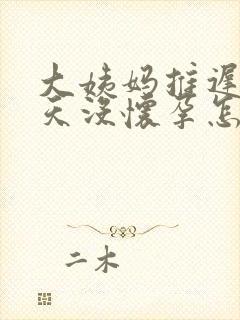 大姨妈推迟
天没怀孕怎
二木